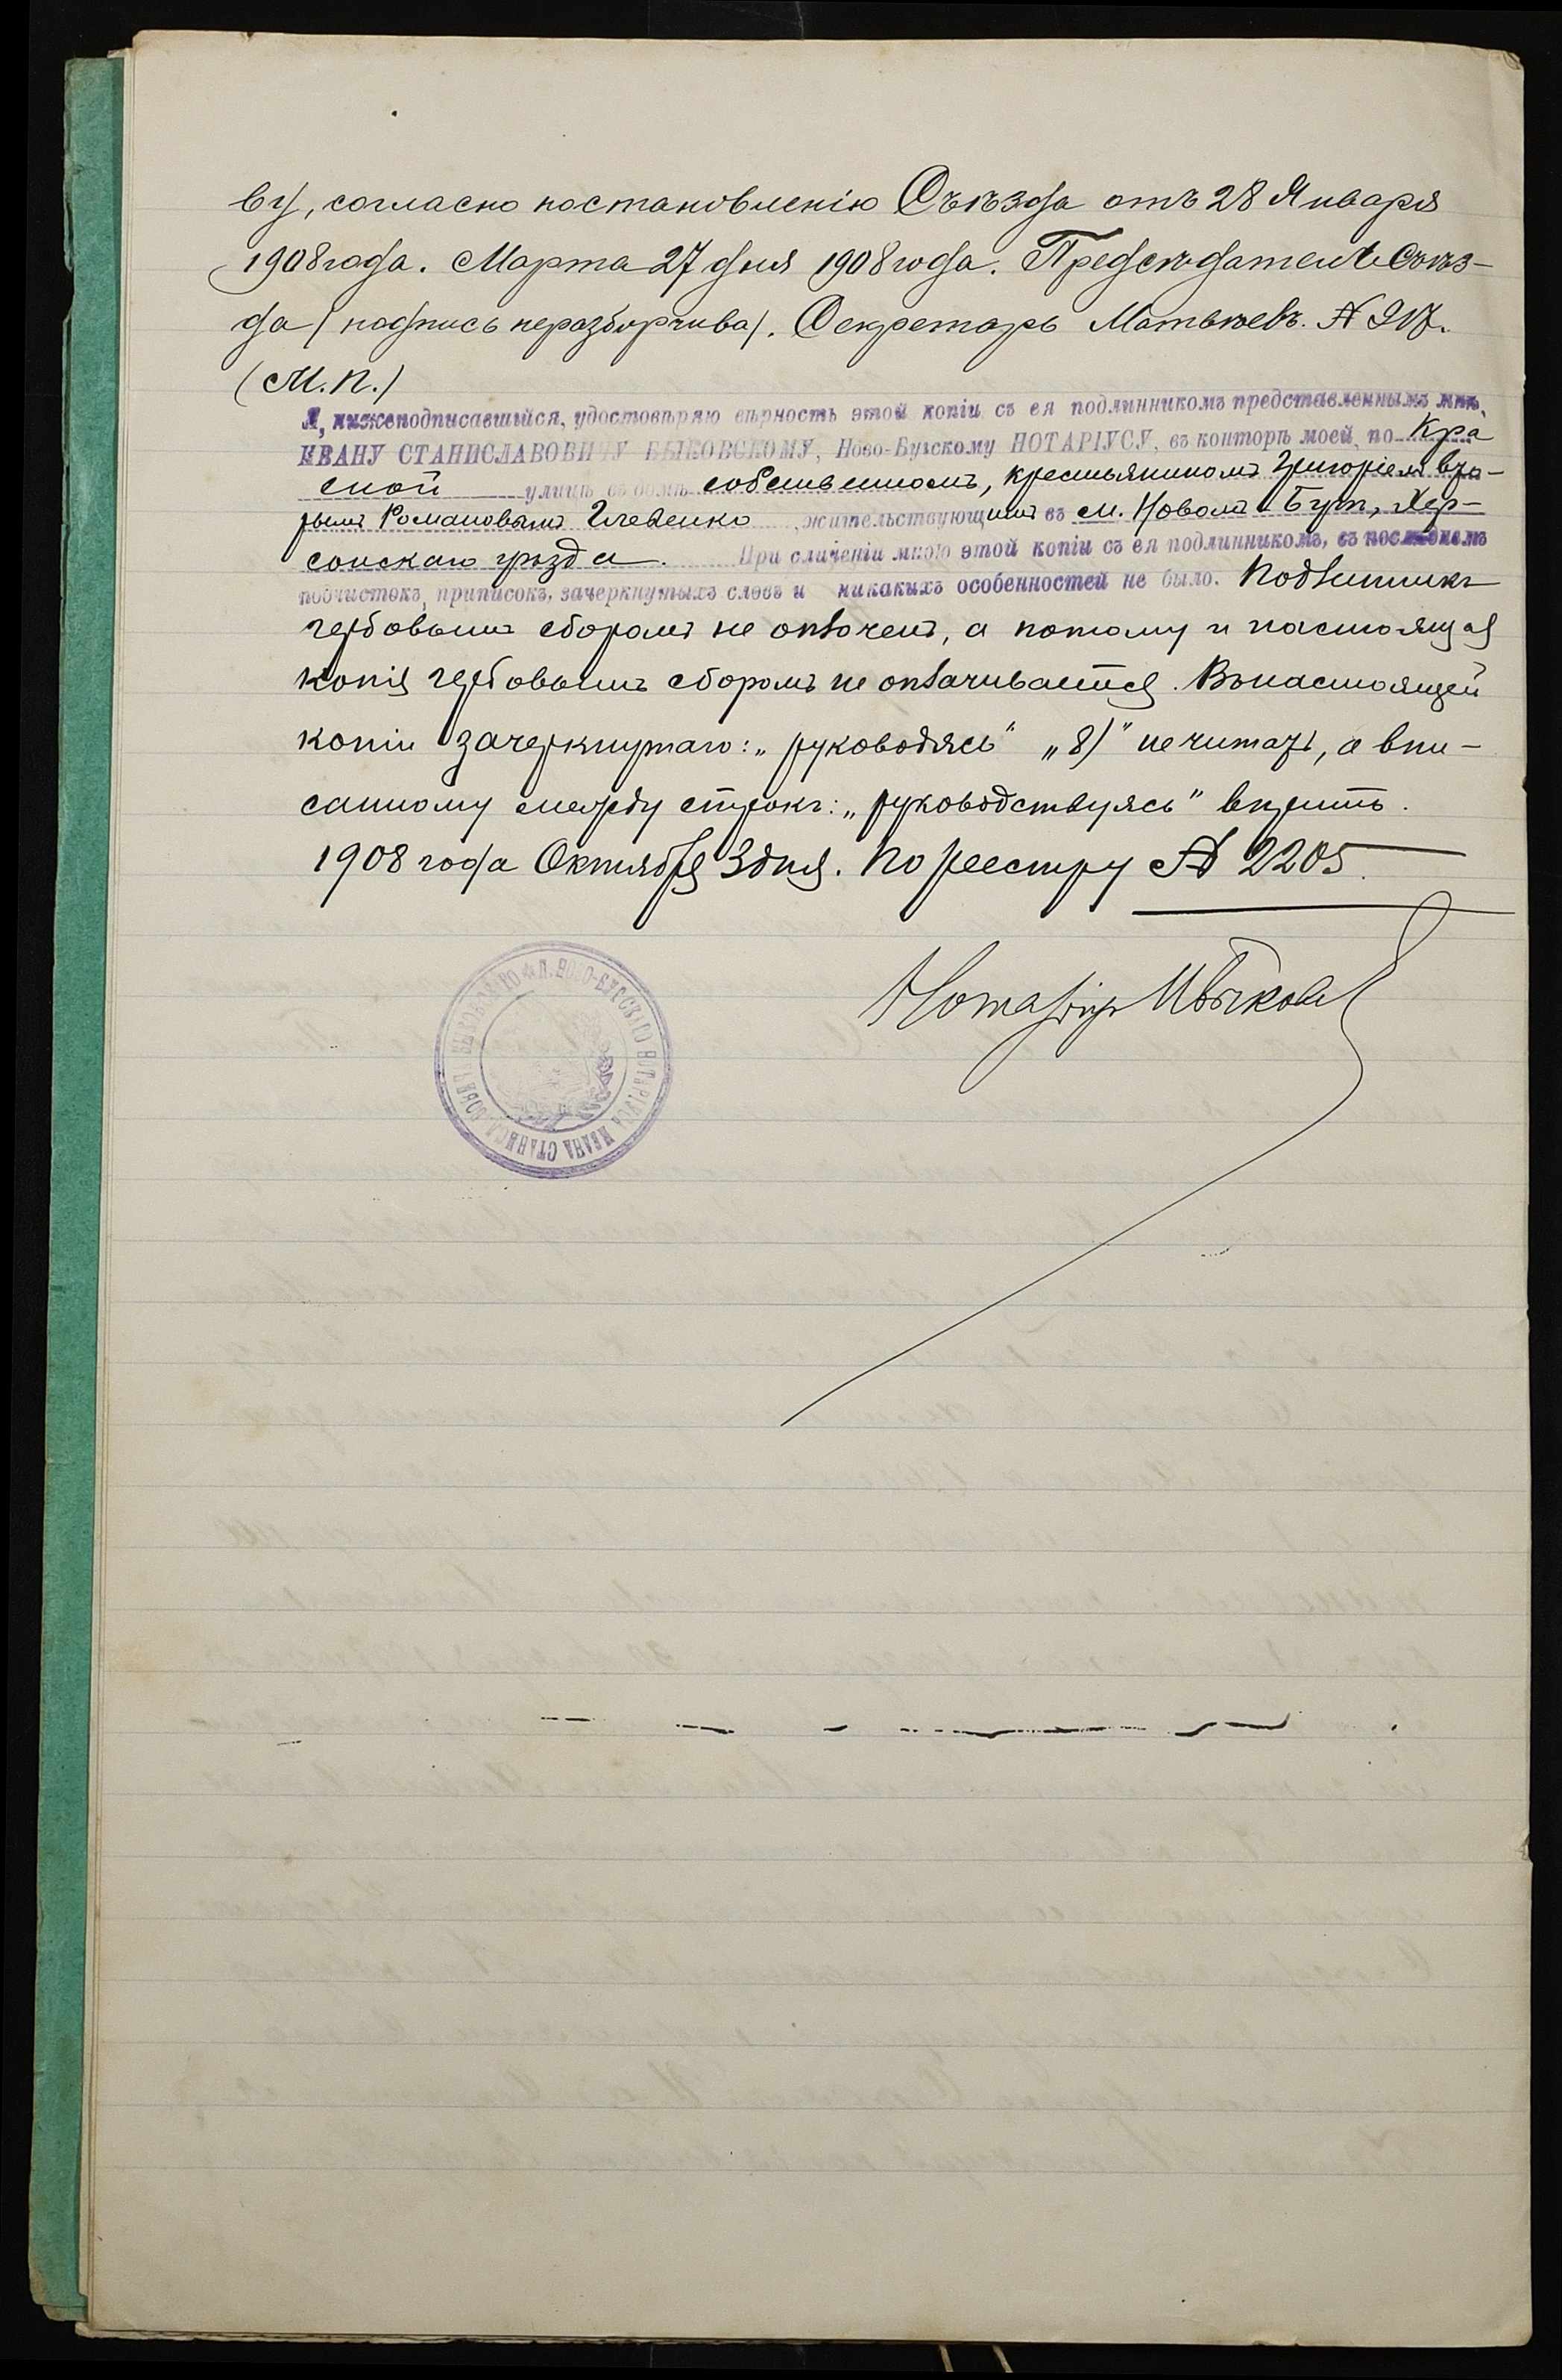 ву, согласно постановленію Съѣзда отъ 28 Января
1908 года. Марта 27 дня 1908 года. Предсѣдатель Съѣз-
да (подпись неразборчива). Секретарь Матвѣевъ. №
(М.П.)
Я, нижеподписавшійся, удостовѣряю вѣрность этой копіи съ ея подлинникомъ представленнымъ мнѣ,
ИВАНУ СТАНИСЛАВОВИЧУ БЫКОВСКОМУ, Ново-Бугскому НОТАРІУСУ, въ конторѣ моей, по Кра
сной улицѣ въ домѣ собственномъ, крестьяниномъ Григоріемъ вто-
рымъ Романовымъ жительствующимъ въ м. Новомъ Бугѣ, Хер-
сонскаго уѣзда. При сличеніи мною этой копіи съ ея подлинникомъ, въ послѣднемъ
подчистокъ, приписокъ, зачеркнутыхъ словъ и никакихъ особенностей не было. Подлинникъ
гербовымъ сборомъ не оплоченъ, а потому и настоящая
копія гербовымъ сборомъ не оплачивается. Въ настоящей
копіи зачеркнутаго: „руководясь" „8)" не читать, а впи-
санному между строкъ: „руководствуясь" вѣрить.
1908 года Октября 3 дня. По реестру № 2205.
Нотаріусъ ИБыковск
П. НОВО-БУГСКАГО НОТАРІУСА ИВАНА СТАНИСЛАВОВИЧА БЫКОВСКАГО